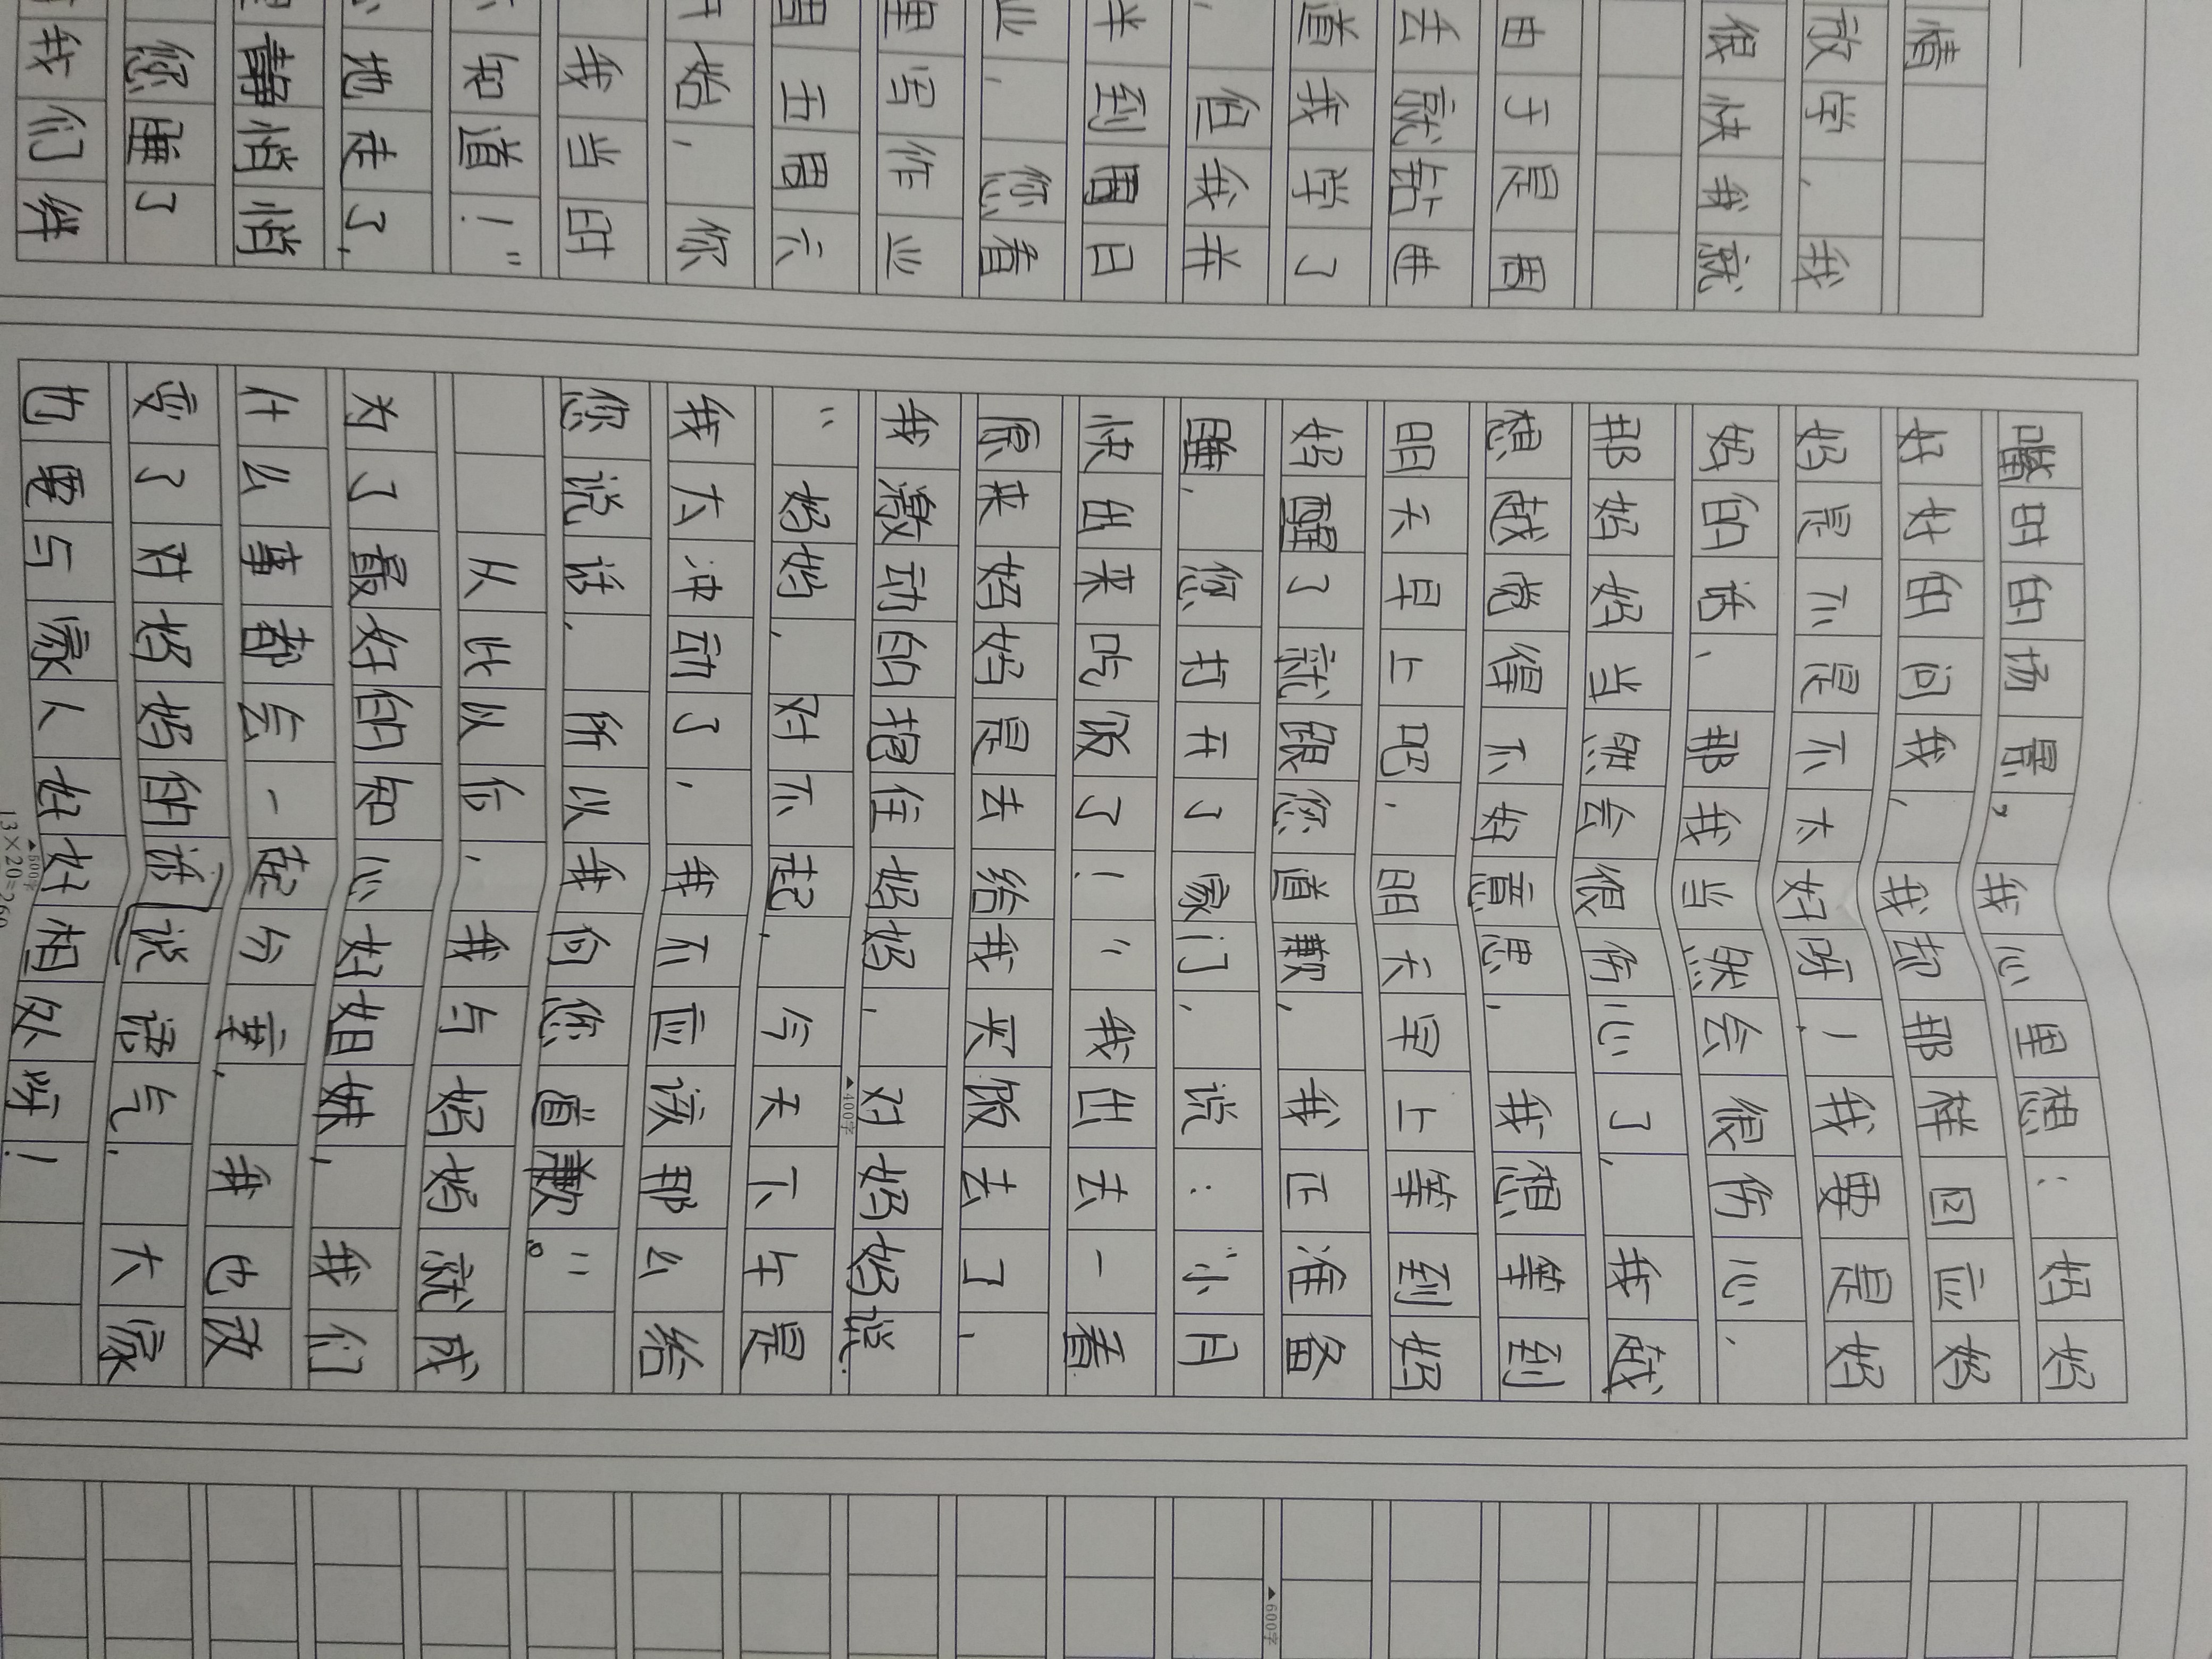 情
放学,我
很快我就
由于是周
去就钻进
道我学了
,但我并
半到周日
业,您看
里写作业
周五周六
开始,你
我当时
知道!”
地走了,
静悄悄
您睡了
我们拌
嘴时的场景,我心里想:妈妈
好好的问我,我却那样回应妈
妈是不是不太好呀!我要是妈
妈的话、那我当然会很伤心.
那妈妈当然会很伤心了,我越
想越觉得不好意思,我想等到
明天早上吧,明天早上等到妈
妈醒了就跟您道歉,我正准备
睡,您打开了家门,说:“小月
快出来吃饭了!”我出去一看
原来妈妈是去给我买饭去了,
我激动的抱住妈妈,对妈妈说.
▲400字
“妈妈,对不起,今天下午是
我太冲动了,我不应该那么给
您说话,所以我向您道歉。”
从此以后,我与妈妈就成
为了最好的知心好姐妹,我们
什么事都会一起分享,我也改
变了对妈妈的话说语气,大家
也要与家人好好相处呀!
▲500字
13×20=260
▲600字